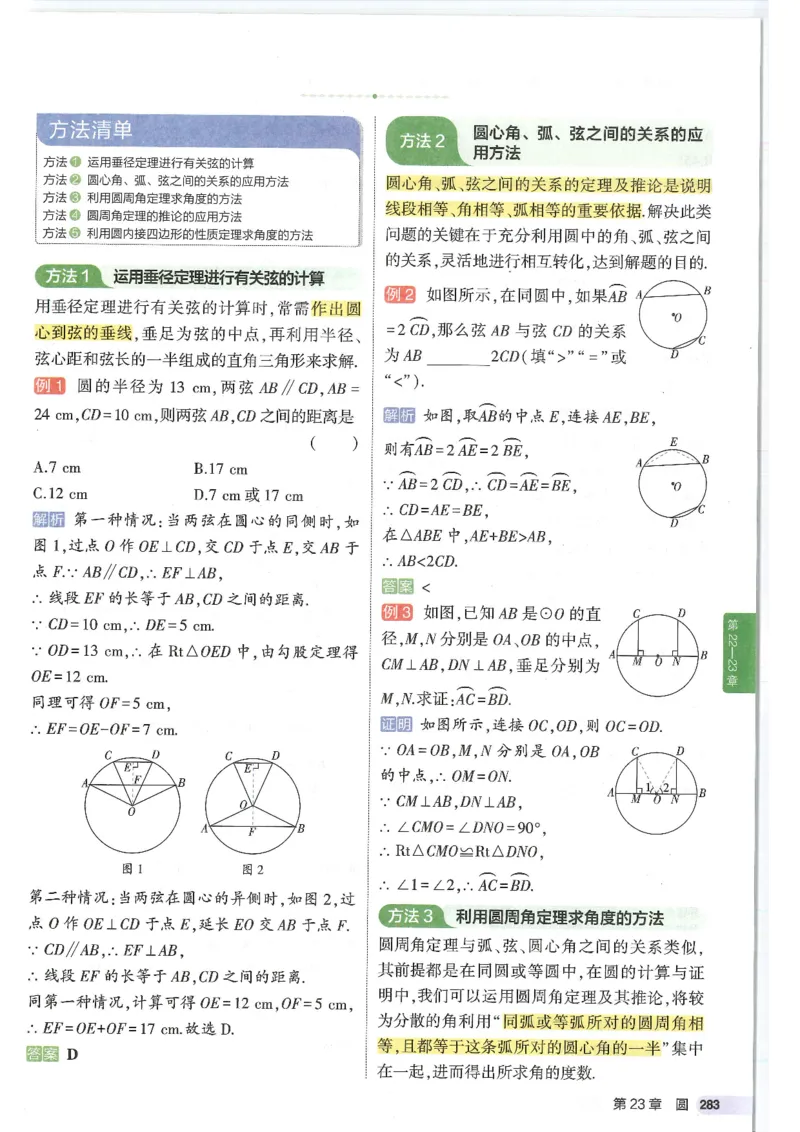 方法清单
方法① 运用垂径定理进行有关弦的计算
方法② 圆心角、弧、弦之间的关系的应用方法
方法③ 利用圆周角定理求角度的方法
方法④ 圆周角定理的推论的应用方法
方法⑤ 利用圆内接四边形的性质定理求角度的方法
方法1 运用垂径定理进行有关弦的计算
用垂径定理进行有关弦的计算时,常需作出圆
心到弦的垂线,垂足为弦的中点,再利用半径、
弦心距和弦长的一半组成的直角三角形来求解.
例1 圆的半径为 13 cm,两弦 AB∥CD,AB=
24 cm,CD=10 cm,则两弦AB,CD之间的距离是
( )
A.7 cm B.17 cm
C.12 cm D.7 cm或17 cm
解析 第一种情况:当两弦在圆心的同侧时,如
图1,过点O作OE⊥CD,交CD于点E,交AB于
点F.∵AB∥CD,∴EF⊥AB,
∴线段EF的长等于AB,CD之间的距离.
∵CD=10 cm,∴DE=5 cm.
∵OD=13 cm,∴在Rt△OED中,由勾股定理得
OE=12 cm.
同理可得OF=5 cm,
∴EF=OE-OF=7 cm.
C D
E
F
A B
O
图1
C D
E
O
A B
F
图2
第二种情况:当两弦在圆心的异侧时,如图2,过
点O作OE⊥CD于点E,延长EO交AB于点F.
∵CD∥AB,∴EF⊥AB,
∴线段EF的长等于AB,CD之间的距离.
同第一种情况,计算可得OE=12 cm,OF=5 cm,
∴EF=OE+OF=17 cm.故选D.
答案 D
方法2 圆心角、弧、弦之间的关系的应
用方法
圆心角、弧、弦之间的关系的定理及推论是说明
线段相等、角相等、弧相等的重要依据.解决此类
问题的关键在于充分利用圆中的角、弧、弦之间
的关系,灵活地进行相互转化,达到解题的目的.
例2 如图所示,在同圆中,如果⌒AB
=2⌒CD,那么弦AB与弦CD的关系
为AB ______2CD(填“>”“=”或
“<”).
A B
O
C
D
解析 如图,取⌒AB的中点E,连接AE,BE,
则有⌒AB=2⌒AE=2⌒BE,
∵⌒AB=2⌒CD,∴⌒CD=⌒AE=⌒BE,
∴CD=AE=BE,
在△ABE中,AE+BE>AB,
∴AB<2CD.
E
A B
O
C
D
答案 <
例3 如图,已知AB是⊙O的直
径,M,N分别是OA、OB的中点,
CM⊥AB,DN⊥AB,垂足分别为
M,N.求证:⌒AC=⌒BD.
C D
A M O N B
证明 如图所示,连接OC,OD,则OC=OD.
∵OA=OB,M,N分别是OA,OB
的中点,∴OM=ON.
∵CM⊥AB,DN⊥AB,
∴∠CMO=∠DNO=90°,
∴Rt△CMO≌Rt△DNO,
∴∠1=∠2,∴⌒AC=⌒BD.
C D
1 2
A M O N B
方法3 利用圆周角定理求角度的方法
圆周角定理与弧、弦、圆心角之间的关系类似,
其前提都是在同圆或等圆中,在圆的计算与证
明中,我们可以运用圆周角定理及其推论,将较
为分散的角利用“同弧或等弧所对的圆周角相
等,且都等于这条弧所对的圆心角的一半”集中
在一起,进而得出所求角的度数.
第22—23章
第23章 圆 283